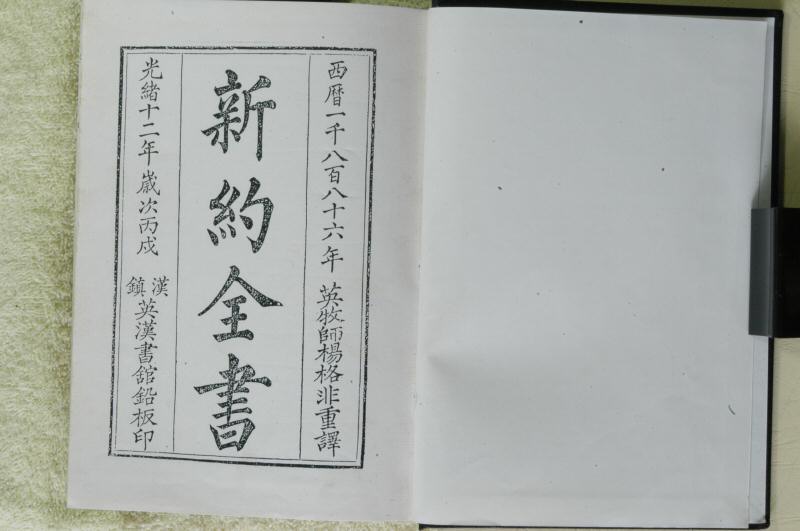 西曆一千八百八十六年 英牧師楊格非重譯
新約全書
光緒十二年歲次丙戌 漢鎮英漢書館鉛板印